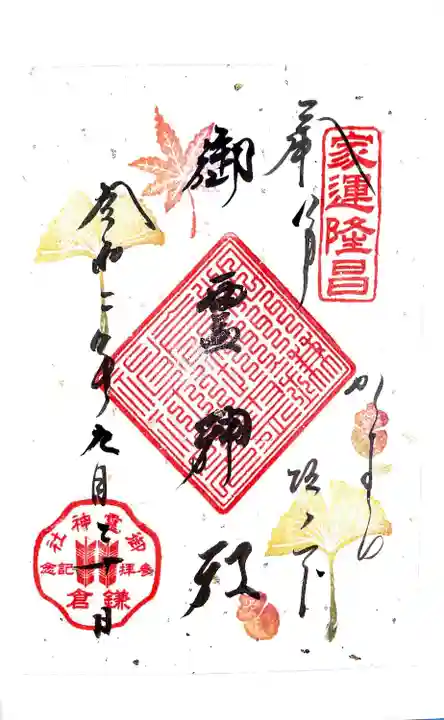 家運隆昌
奉拝
かまくら
坂ノ下
御霊神社
令和二年九月二十日
御靈神社
参拝記念
鎌倉